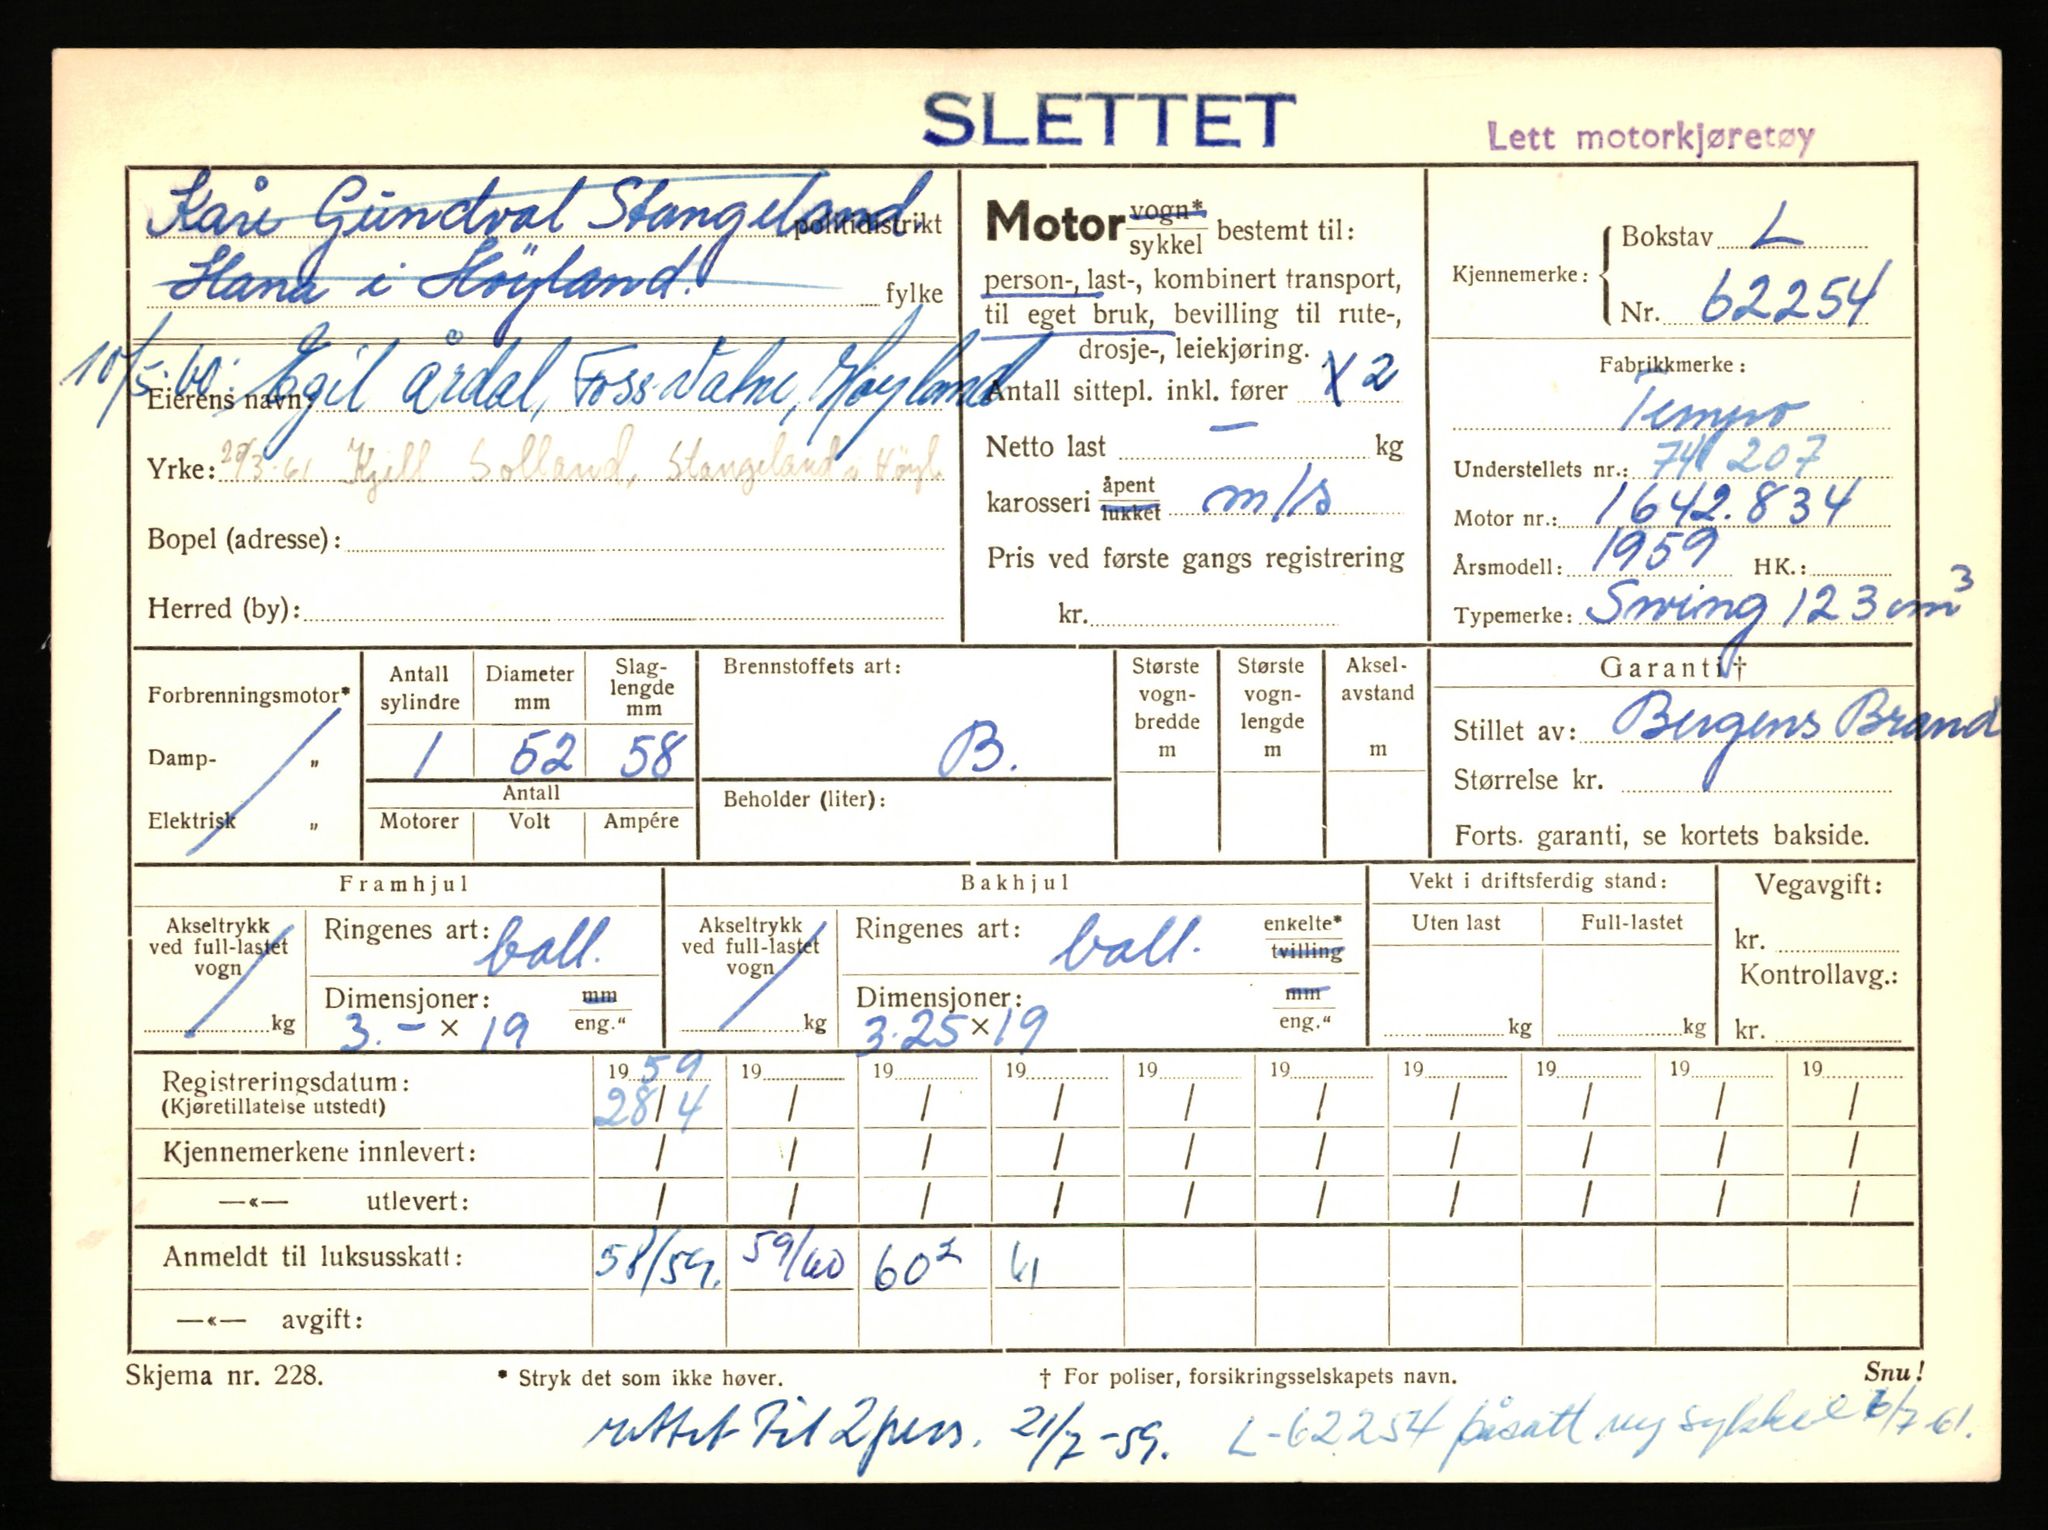 SLETTET
Lett motorkjøretøy
Kåre Gundval Stangeland politidistrikt
Hana i Höyland. fylke
10/5-60. Egil Årdal, Foss-Vatne, Høyland
Eierens navn:
Yrke: 20/3-61 Kjell Solland, Stangeland i Höyl.
Bopel (adresse):
Herred (by):
Motor vogn* / sykkel bestemt til:
person-, last-, kombinert transport,
til eget bruk, bevilling til rute-,
drosje-, leiekjøring.
Antall sittepl. inkl. fører 2
Netto last — kg
karosseri åpent / lukket m/s
Pris ved første gangs registrering
kr.
Kjennemerke: Bokstav L
Nr. 62254
Fabrikkmerke:
Tempo
Understellets nr.: 741 207
Motor nr.: 1642.834
Årsmodell: 1959 HK.:
Typemerke: Swing 123 cm³
Forbrenningsmotor*
Damp- „
Elektrisk „
Antall sylindre Diameter mm Slag-lengde mm
1 52 58
Antall
Motorer Volt Ampére
Brennstoffets art:
B.
Beholder (liter):
Største vogn-bredde m
Største vogn-lengde m
Aksel-avstand m
Garanti †
Stillet av: Bergens Brand
Størrelse kr.
Forts. garanti, se kortets bakside.
Framhjul
Akseltrykk ved full-lastet vogn kg
Ringenes art: ball.
Dimensjoner: mm / eng."
3.- × 19
Bakhjul
Akseltrykk ved full-lastet vogn kg
Ringenes art: ball. enkelte* / tvilling
Dimensjoner: mm / eng."
3.25 × 19
Vekt i driftsferdig stand:
Uten last Full-lastet
kg kg
Vegavgift:
kr.
Kontrollavg.:
kr.
Registreringsdatum: 19 59 19 19 19 19 19 19 19 19 19
(Kjøretillatelse utstedt) 28/4 / / / / / / / / /
Kjennemerkene innlevert: / / / / / / / / / /
—«— utlevert: / / / / / / / / / /
Anmeldt til luksusskatt: 58/59. 59/60 60² 61
—«— avgift:
Skjema nr. 228. * Stryk det som ikke høver. † For poliser, forsikringsselskapets navn. Snu!
rettet til 2 pers. 21/7-59. L-62254 påsatt ny sykkel 6/7-61.